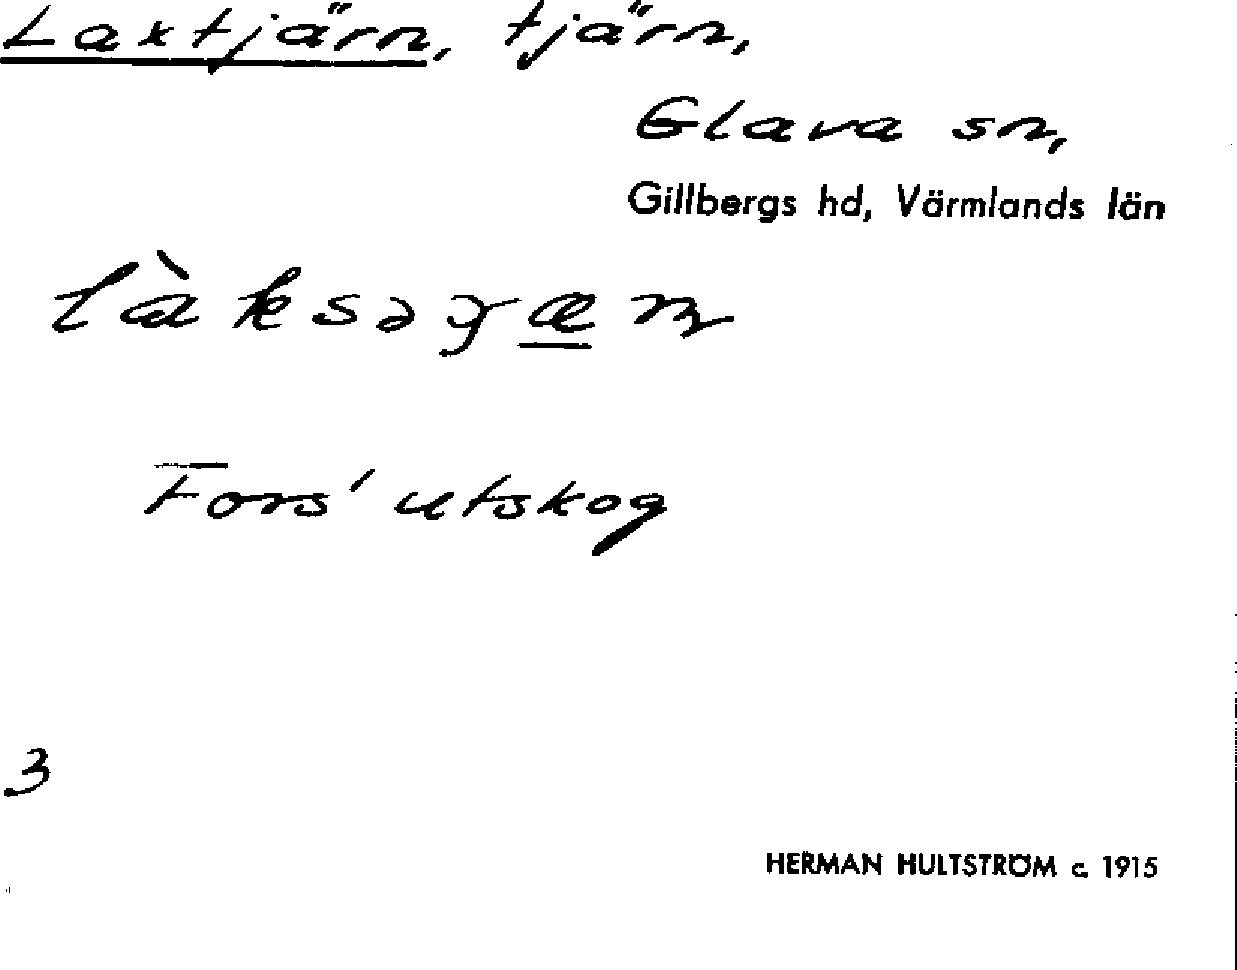 Laxtjärn, tjärn,
Glava sn,
Gillbergs hd, Värmlands län
Fors' utskog
3
HERMAN HULTSTRÖM c. 1915